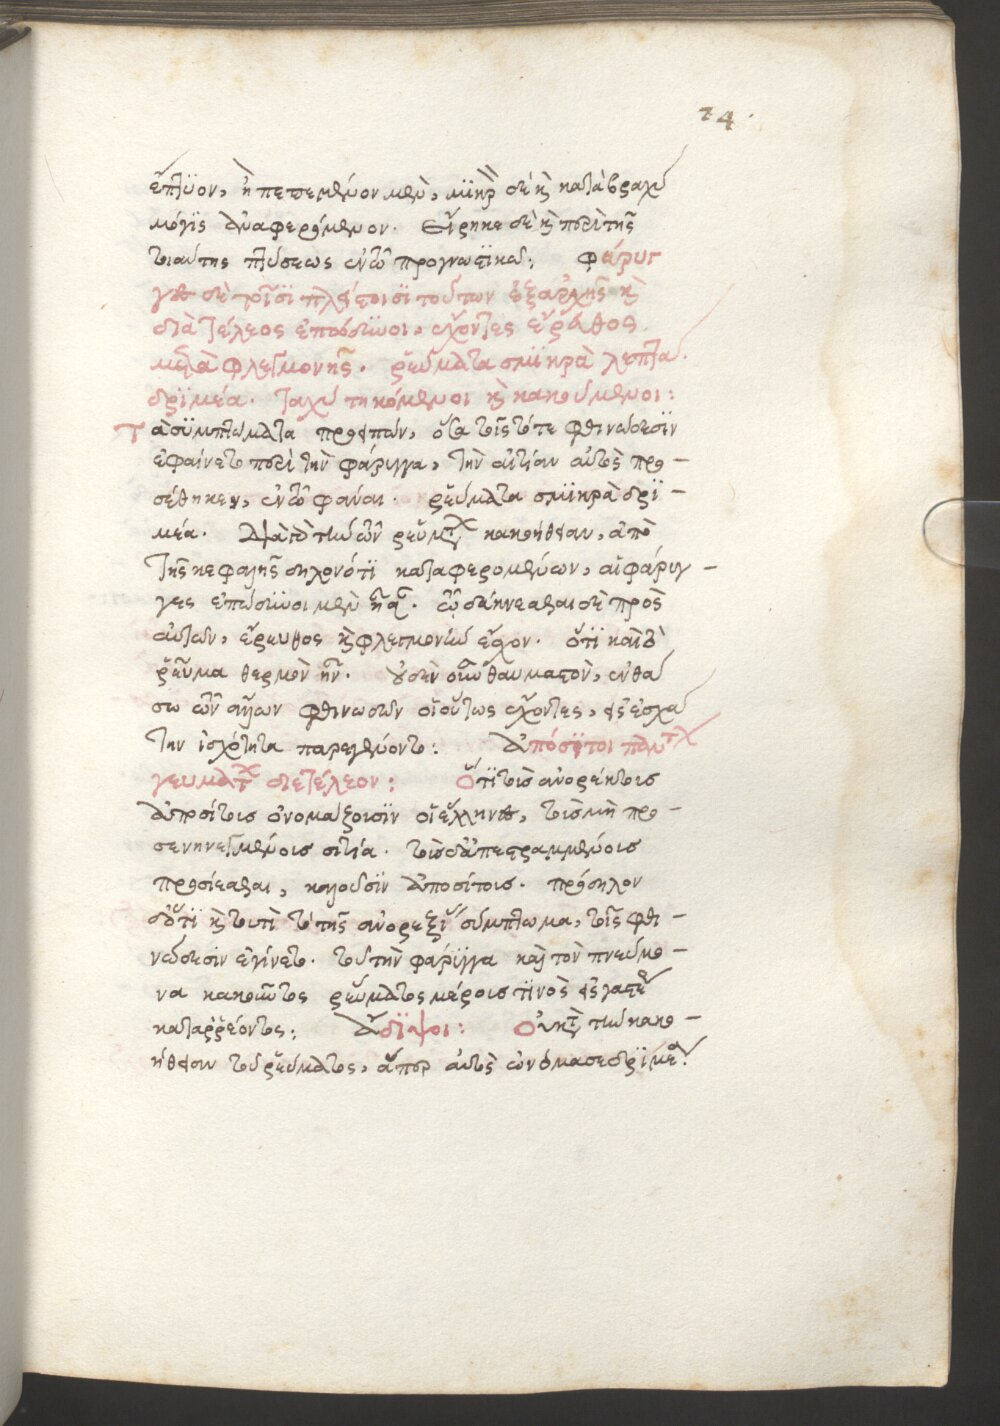 74
ἔπτυον, ἢ πεπεμμένον μὲν, μικρὸν δὲ καὶ κατὰ βραχὺ
μόγις ἀναφερόμενον. Εἴρηκε δὲ καὶ περὶ τῆς
τοιαύτης πτύσεως ἐν τῶ προγνωστικῶ: φάρυγ
γες δὲ τοῖσι πλείστοισι τούτων ἐξ ἀρχῆς καὶ
διὰ τέλεος ἐπώδυνοι, ἔχοντες ἔρευθος
μετὰ φλεγμονῆς. ῥεύματα σμικρὰ λεπτὰ
δριμέα. ταχὺ τηκόμενοι καὶ κακούμενοι:
Τὰ συμπτώματα προειπὼν, ὅσα τοῖς τότε φθινώδεσιν
ἐφαίνετο περὶ τὴν φάρυγγα, τὴν αἰτίαν αὐτὸς προ-
σέθηκεν, ἐν τῶ φάναι. ῥεύματα σμικρὰ δρι-
μέα. διὰ τὴν τῶν ῥευμάτων κακοήθειαν, ἀπὸ
τῆς κεφαλῆς δηλονότι καταφερομένων, αἱ φάρυγ-
γες ἐπώδυνοι μὲν ἦσαν. τῶ διηνεκεῖσθαι δὲ πρὸς
αὐτῶν, ἔρευθος καὶ φλεγμονὴν εἶχον. ὅτι καὶ τὸ
ῥεῦμα θερμὸν ἦν. οὐδὲν οὖν θαυμαστὸν, ἐνθα
δὴ τῶν ἄλλων φθινωδῶν οἱ οὕτως ἔχοντες, εἰς ἐσχά
την ἰσχνότητα παρεγένοντο: Ἀπόσιτοι πάντων
γευμάτων διετέλεον: Ὅτι τοὺς ἀνορέκτους
ἀποσίτους ὀνομάζουσιν οἱ ἕλληνες, τοὺς μὴ προ-
σενηνεγμένοις σιτία. τοὺς δ' ἀπεστραμμένους
προσίεσθαι, καλοῦσιν ἀποσίτους. πρόδηλον
δ' ὅτι καὶ τουτὶ τὸ τῆς ἀνορεξίας σύμπτωμα, τοῖς φθι-
νώδεσιν ἐγίνετο. τοῦ τὴν φάρυγγα καὶ τὸν πνεύμο-
να κακοῦντος ῥεύματος μέρους τινὸς εἰς γαστέρα
καταρρέοντος: Ἄδιψοι: Οὐ κατὰ τὴν κακο-
ήθειαν τοῦ ῥεύματος, ἅπερ αὐτὸς ὠνόμασε δριμέα: